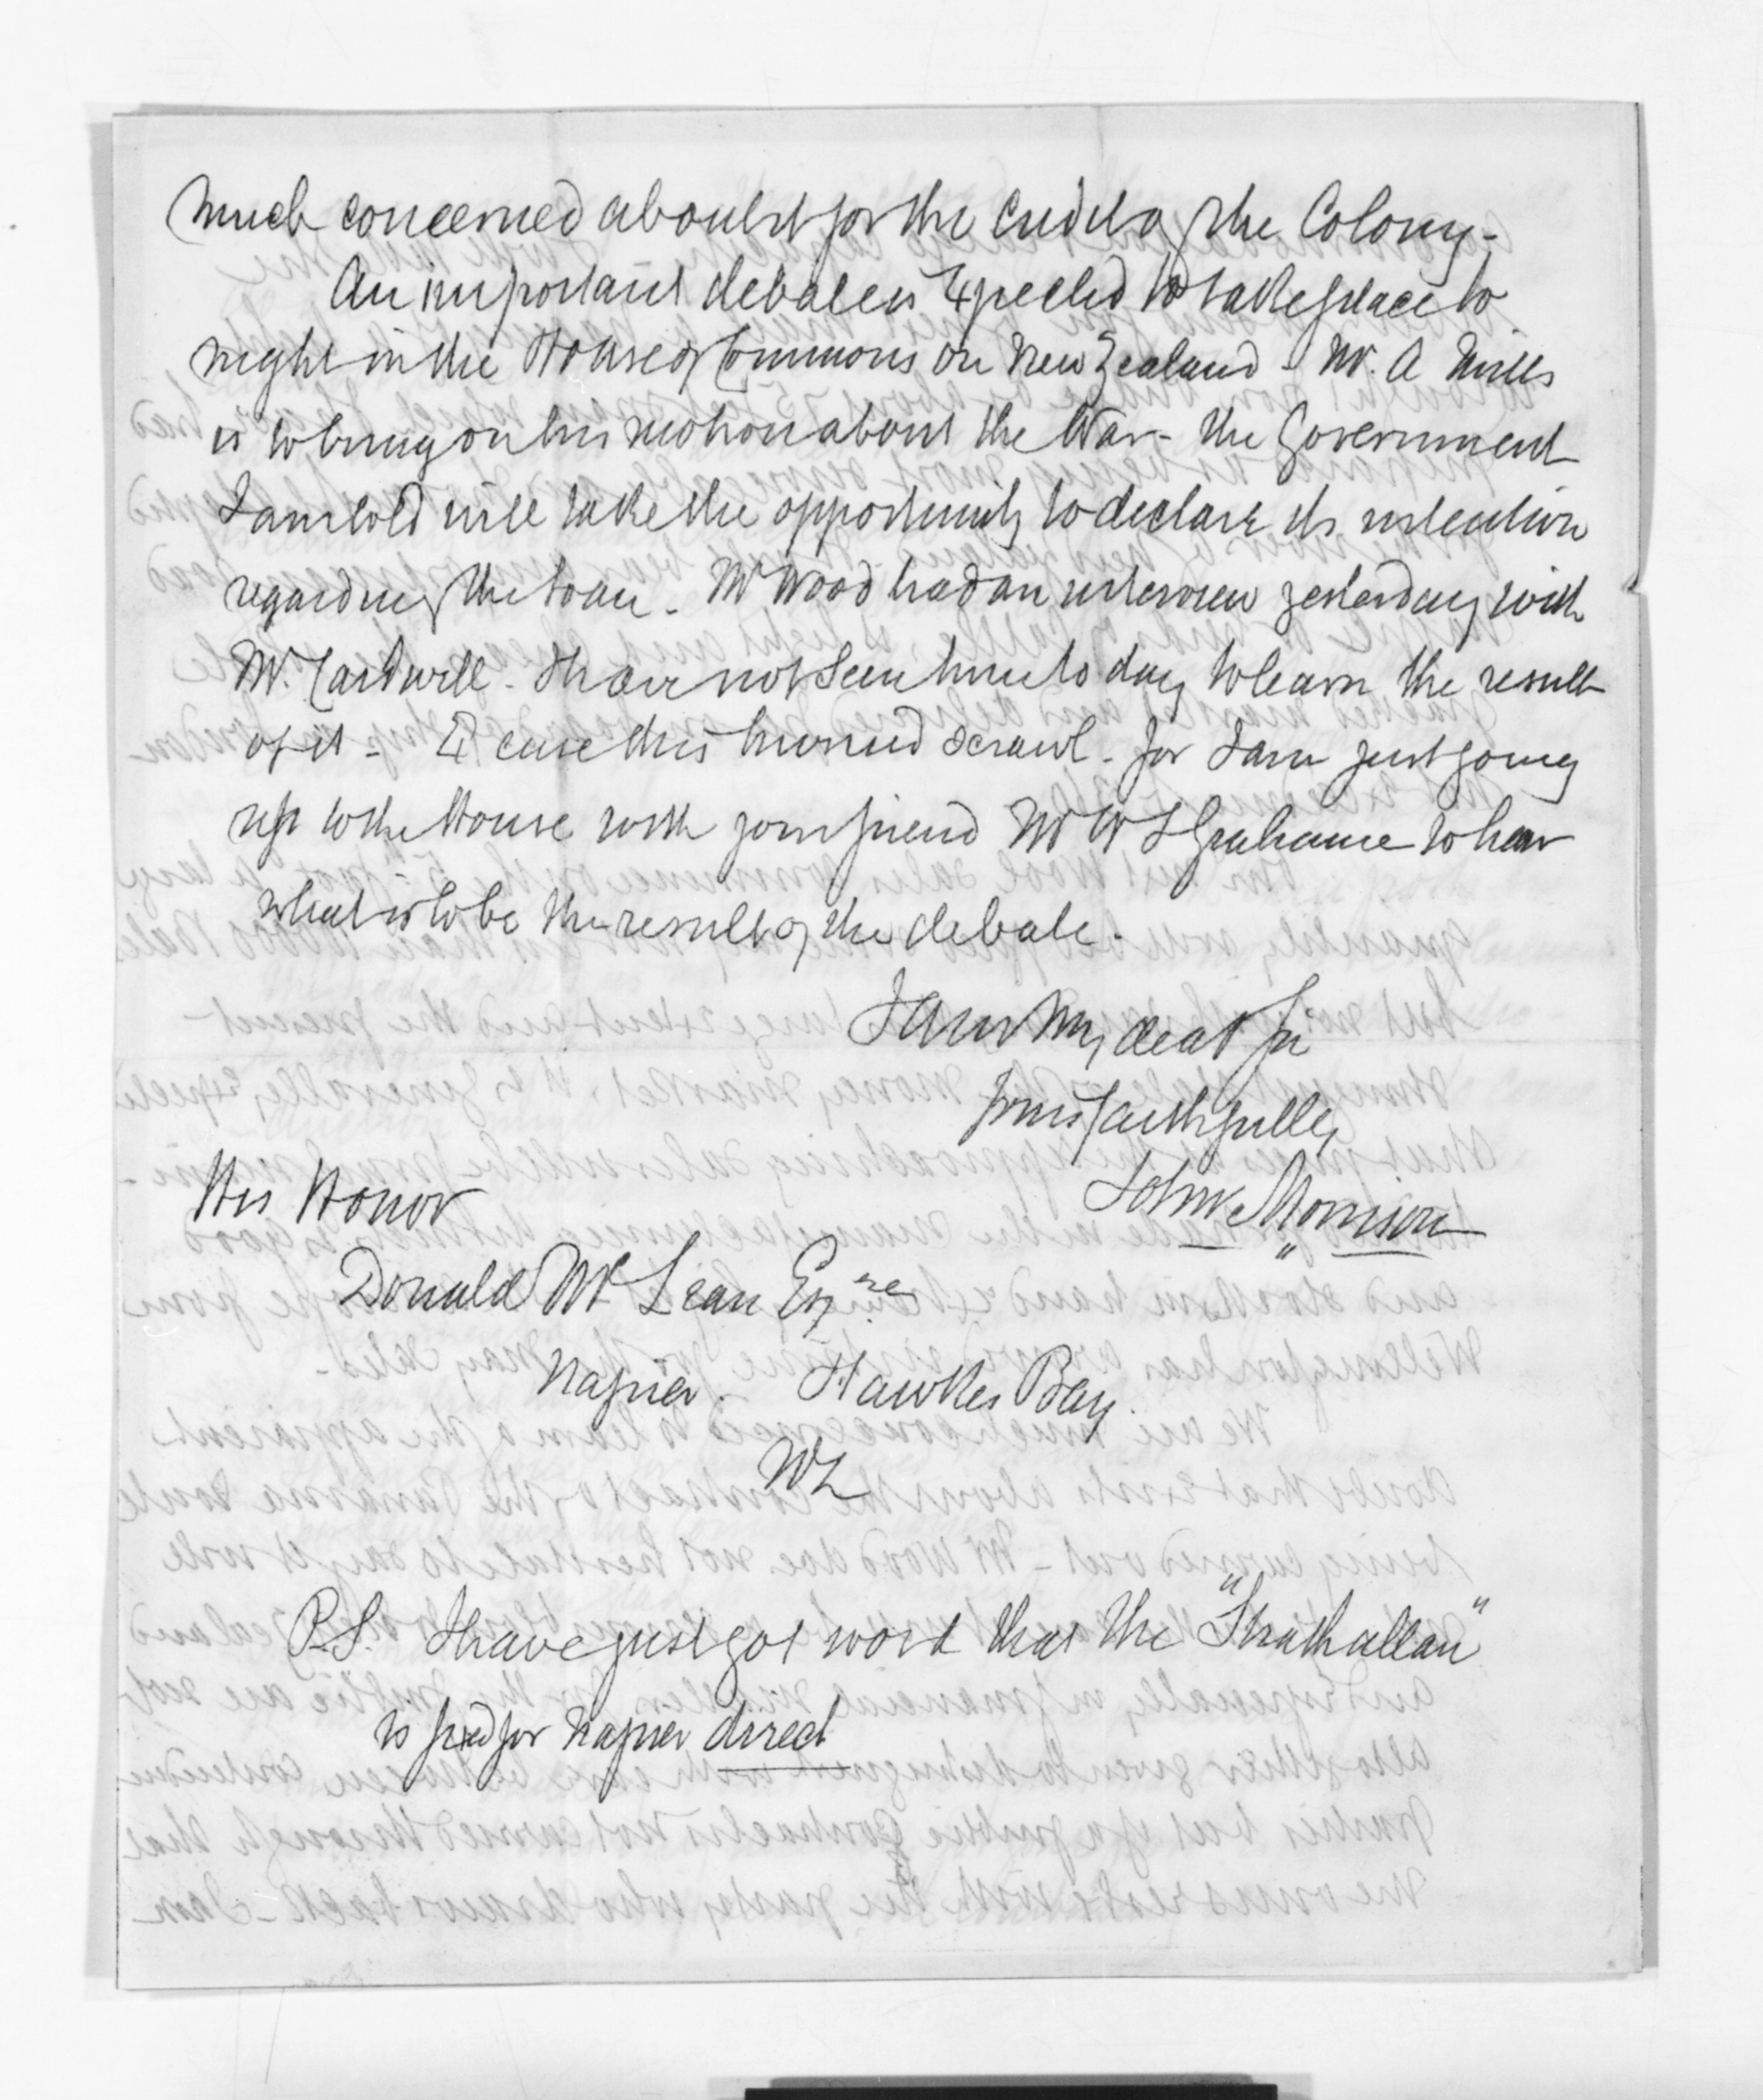 much concerned about it for the credit of the Colony -
An important debate is Expected to take place to
night in the House of Commons on New Zealand - Mr. A Mills
is to bring on his motion about the War - the Government
I am told will take the opportunity to declare its intention
regarding the Loan - Mr Wood had an interview yesterday with
Mr. Cardwell - I have not seen him to day to learn the result
of it - Excuse this hurried scrawl - for I am just going
up to the House with your friend Mr W S Grahame to hear
what is to be the result of the debate -
I am My dear Sir
Yours faithfully
John Morrison
His Honor
Donald McLean Esqre
Napier. Hawkes Bay.
NZ
P.S. I have just got word that the "Strathallan"
is fixed for Napier direct